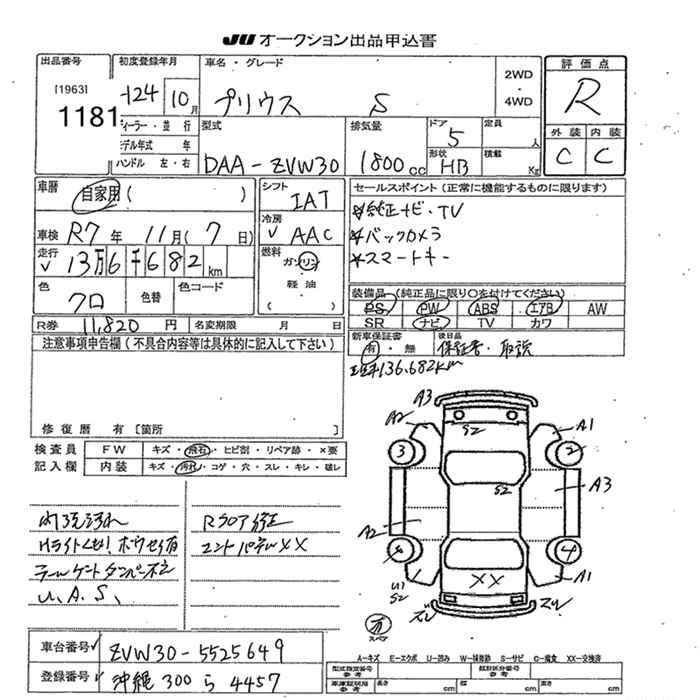 JU オークション出品申込書
出品番号
[1963]
1181
初度登録年月
H24 10月
ディーラー・並行
モデル年式 年
ハンドル 左・右
車名・グレード
プリウス S
2WD
・
4WD
評価点
R
外装 内装
C C
型式
DAA-ZVW30
排気量
1800cc
ドア 5
形状 HB
定員 人
積載 Kg
車歴
自家用( )
車検 R7年 11月(7日)
走行 13万6千682km
色 クロ
色替
色コード
シフト
IAT
冷房
AAC
燃料
ガソリン
軽油
( )
セールスポイント(正常に機能するものに限ります)
*純正ナビ・TV
*バックカメラ
*スマートキー
装備品(純正品に限り○を付けてください)
PS PW ABS エアB AW
SR ナビ TV カワ
R券 11,820円
名変期限 月 日
新車保証書
有・無
後日品
保証書・取説
注意事項申告欄(不具合内容等は具体的に記入して下さい)
136,682km
修復歴 有[箇所 ]
検査員
記入欄
FW キズ・飛石・ヒビ割・リペア跡・×要
内装 キズ・汚れ・コゲ・穴・スレ・キレ・破レ
内装汚れ
Rフロア修正
Hライトくもり ボウセイ有
エンドパネルXX
テールゲートダンパー不良
U.A.S、
A3
A2 A1
S2
3 2
S2
A3
A2
4
U1
S2
A1
XX
スペア
車台番号 ZVW30-5525649
登録番号 沖縄 300 ら 4457
A-キズ E-エクボ U-凹み W-補修跡 S-サビ C-腐食 XX-交換済
型式指定番号
参考
類別区分番号
参考
車庫証明用
参考
長さ cm 幅 cm 高さ cm